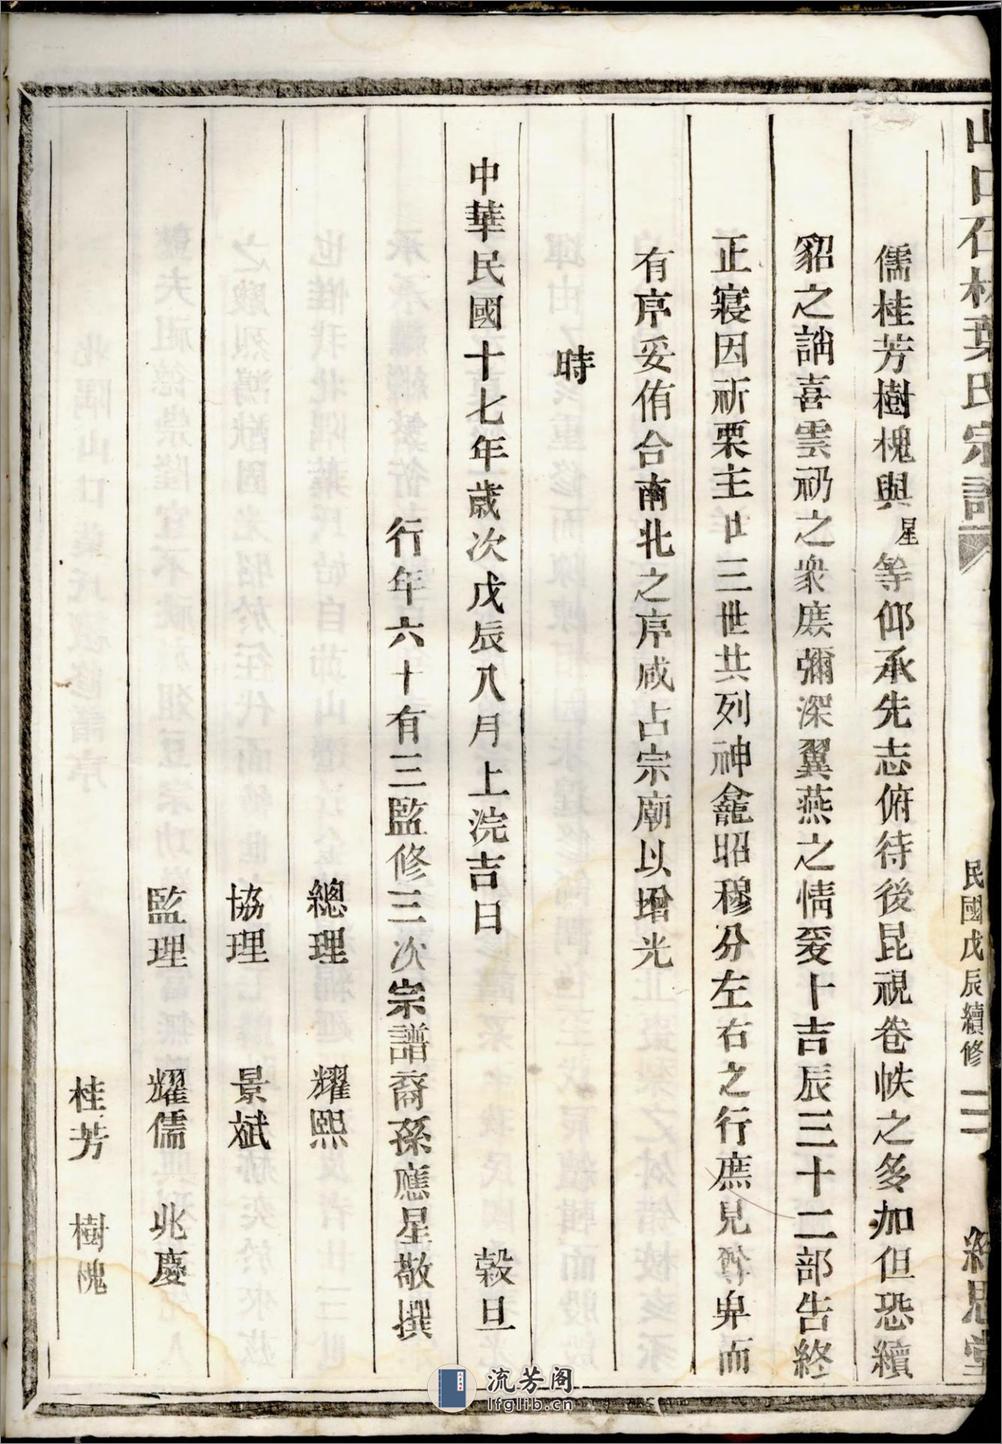 山口仁林葉氏宗譜
民國戊辰續修
二
儒桂芳樹槐與星等仰承先志俯待後昆視卷帙之多加但恐續
貂之誚喜雲礽之衆庶彌深翼燕之情爰十吉辰三十二部告終
正寢因祈栗主廿三世共列神龕昭穆分左右之行庶見尊卑而
有序妥侑合南北之序咸占宗廟以增光
時
中華民國十七年歲次戊辰八月上浣吉日 穀旦
行年六十有三監修三次宗譜裔孫應星敬撰
總理 耀熙
協理 景斌
監理 耀儒 兆慶
桂芳 樹槐
流芳阁
lfglib.cn